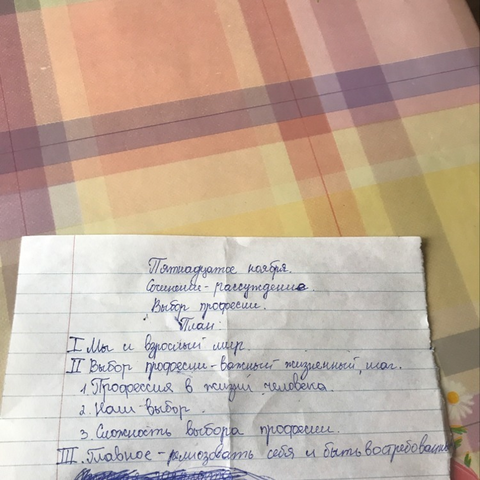 Пятнадцатое ноября.
Сочинение-рассуждение.
Выбор професии.
План:
I Мы и взрослый мир.
II Выбор професии-важный жизненный шаг.
1. Профессия в жизни человека.
2. Наш выбор.
3. Сложность выбора професии.
III. Главное-реализовать себя и быть востребованн